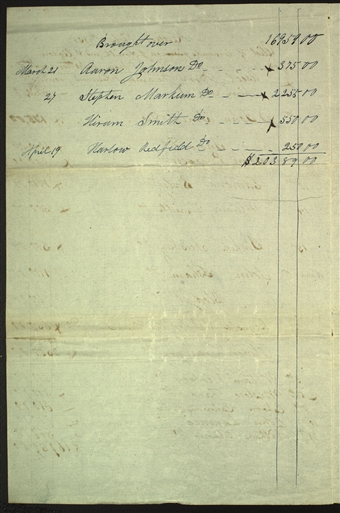 Brought over 16959 00
March 21 Aaron Johnson Do x 375 00
21 Stephen Markum Do x 2255 00
Hiram Smith Do x 550 00
April 19 Harlow Redfield Do 250 00
$20389.00